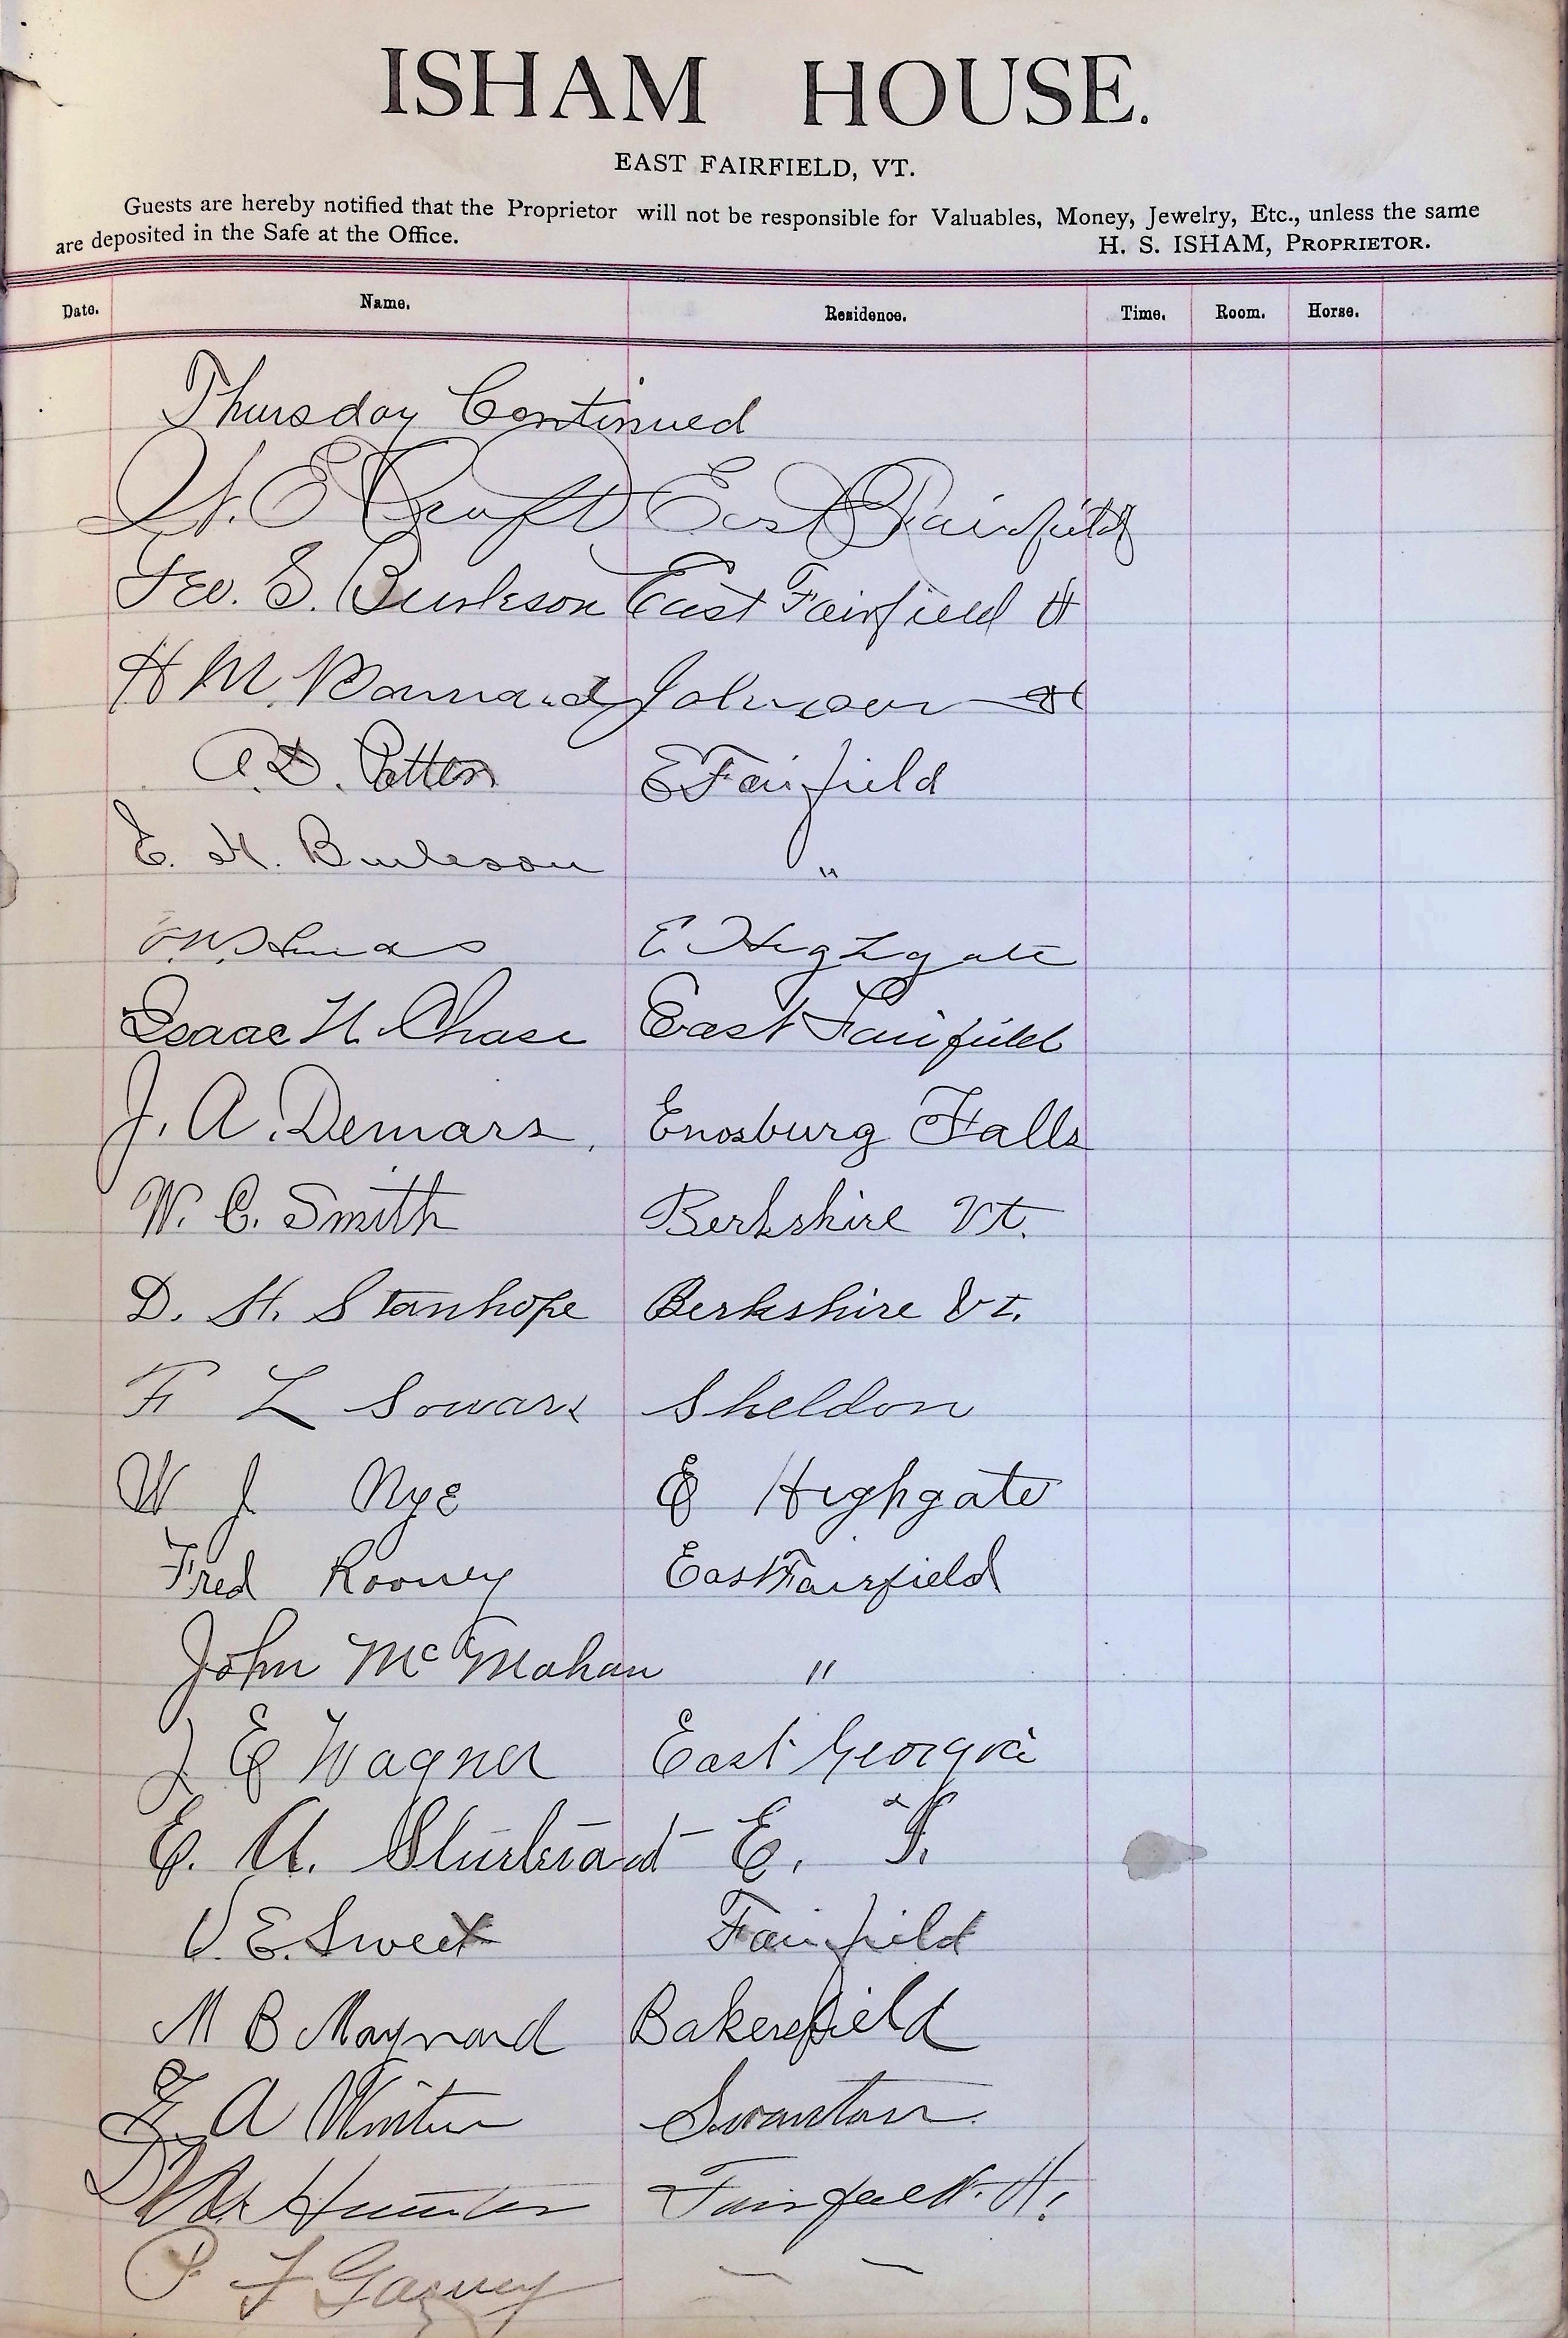 ISHAM HOUSE.
EAST FAIRFIELD, VT.
Guests are hereby notified that the Proprietor will not be responsible for Valuables, Money, Jewelry, Etc., unless the same
are deposited in the Safe at the Office. H. S. ISHAM, PROPRIETOR.
Date. Name. Residence. Time. Room. Horse.
Thursday Continued
E Croft East Fairfield
Geo. S. Burleson East Fairfield H
H M. Barnard Johnson
A. D. Patten E Fairfield
E. H. Burleson "
E Highgate
Isaac H. Chase East Fairfield
J. A. Demars. Enosburg Falls
W. C. Smith Berkshire Vt.
D. H. Stanhope Berkshire Vt.
F L Sowars Sheldon
W J Nye E Highgate
Fred Rooney East Fairfield
John McMahan "
J E Wagner East Georgia
E. A. Sturtevant - E. F.
V. E. Sweet Fairfield
M B Maynard Bakersfield
F. A Winter Swanton.
Hunter Fairfield
P F Garvey